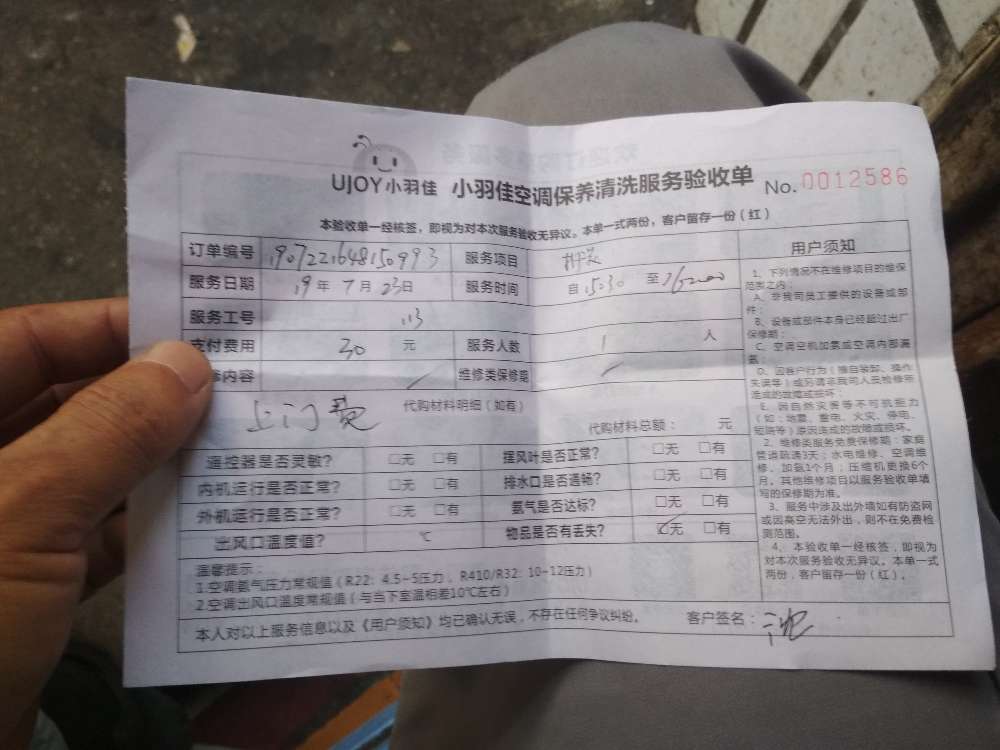 UJOY小羽佳 小羽佳空调保养清洗服务验收单 No.0012586
本验收单一经核签，即视为对本次服务验收无异议。本单一式两份，客户留存一份（红）
订单编号 190722164815099 3 服务项目
服务日期 19年7月23日 服务时间 自15030至162000
服务工号 113
支付费用 30 元 服务人数 1 人
修内容 维修类保修期
上门费 代购材料明细（如有）
代购材料总额： 元
遥控器是否灵敏？ □无 □有 摆风叶是否正常？ □无 □有
内机运行是否正常？ □无 □有 排水口是否通畅？ □无 □有
外机运行是否正常？ □无 □有 氨气是否达标？ □无 □有
出风口温度值？ ℃ 物品是否有丢失？ ☑无 □有
温馨提示：
1.空调氨气压力常规值（R22：4.5~5压力，R410/R32：10~12压力）
2.空调出风口温度常规值（与当下室温相差10℃左右）
本人对以上服务信息以及《用户须知》均已确认无误，不存在任何争议纠纷。 客户签名：沈
用户须知
1、下列情况不在维修项目的维保
范围之内：
A、非我司员工提供的设备或部
件；
B、设备或部件本身已经超过出厂
保修期；
C、空调空机加氨或空调内部漏
氨；
D、因客户行为（擅自装卸、操作
失误等）或另请非我司人员检修所
造成的故障或损坏；
E、因自然灾害等不可抗能力
（如：地震、雷电、火灾、停电、
短路等）原因造成的故障或损坏。
2、维修类服务免费保修期：家庭
管道疏通3天；水电维修、空调维
修、加氨1个月；压缩机更换6个
月，其他维修项目以服务验收单填
写的保修期为准。
3、服务中涉及出外墙如有防盗网
或因高空无法外出，则不在免费检
测范围。
4、本验收单一经核签，即视为
对本次服务验收无异议。本单一式
两份，客户留存一份（红）。